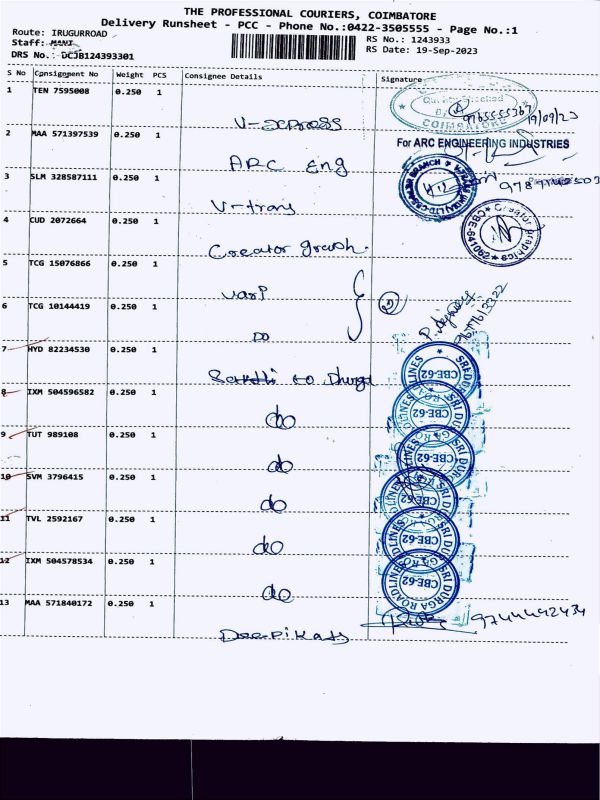 THE PROFESSIONAL COURIERS, COIMBATORE
Delivery Runsheet - PCC - Phone No.:0422-3505555 - Page No.:1
Route: IRUGURROAD
RS No.: 1243933
Staff: MANI
RS Date: 19-Sep-2023
DRS No.: DCJB124393301
S No Consignment No Weight PCS Consignee Details Signature
1 TEN 7595008 0.250 1 V-xpress COIMBATORE 19/09/23
2 MAA 571397539 0.250 1 ARC Eng For ARC ENGINEERING INDUSTRIES
3 SLM 328587111 0.250 1 V-trans
4 CUD 2072664 0.250 1 Creator graph. Creator Graphics CBE-641062
5 TCG 15076866 0.250 1 VARP
6 TCG 10144419 0.250 1 DO
7 HYD 82234530 0.250 1 Sakthi to Durga SRI DURGA ROADLINES CBE-62
8 IXM 504596582 0.250 1 do SRI DURGA ROADLINES CBE-62
9 TUT 989108 0.250 1 do SRI DURGA ROADLINES CBE-62
10 SVM 3796415 0.250 1 do SRI DURGA ROADLINES CBE-62
11 TVL 2592167 0.250 1 do SRI DURGA ROADLINES CBE-62
12 IXM 504578534 0.250 1 do SRI DURGA ROADLINES CBE-62
13 MAA 571840172 0.250 1 Deepikats 9744492434